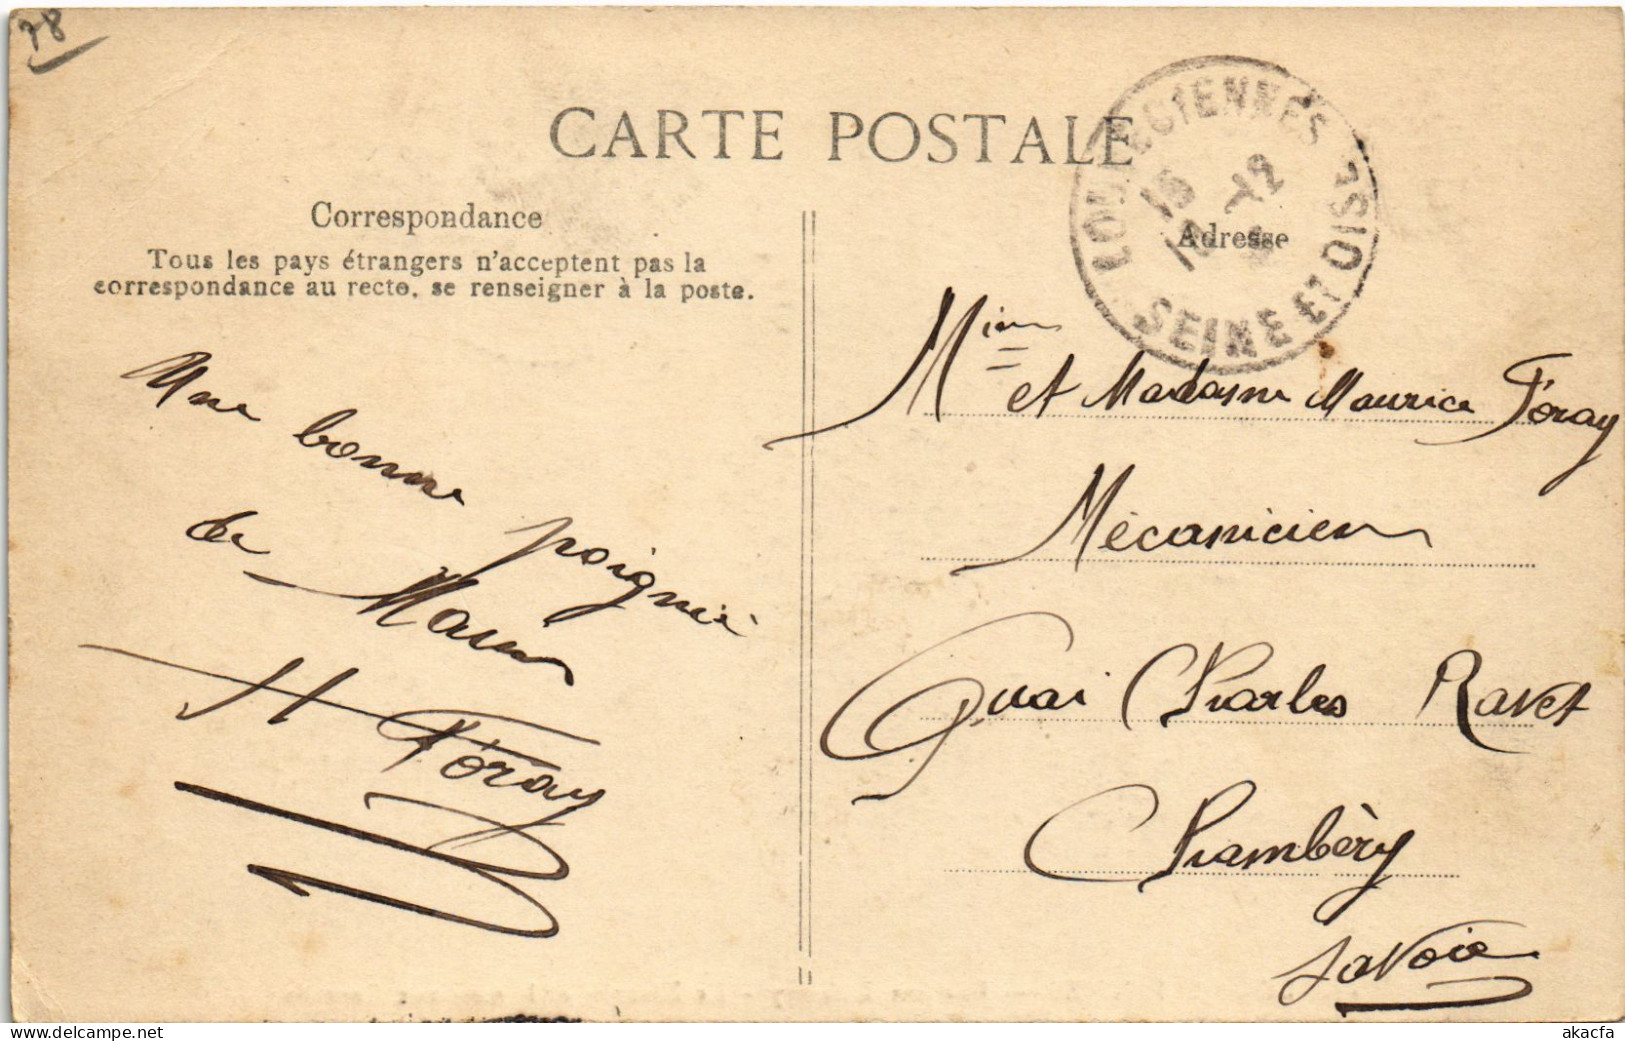 78
CARTE POSTALE
LOUVECIENNES
SEINE ET OISE
Correspondance
Tous les pays étrangers n'acceptent pas la
correspondance au recto, se renseigner à la poste.
Adresse
Une bonne poignée
de Main
H Foray
et Madame Maurice Foray
Mécanicien
Quai Charles Ravet
Chambèry
Savoie
akacfa